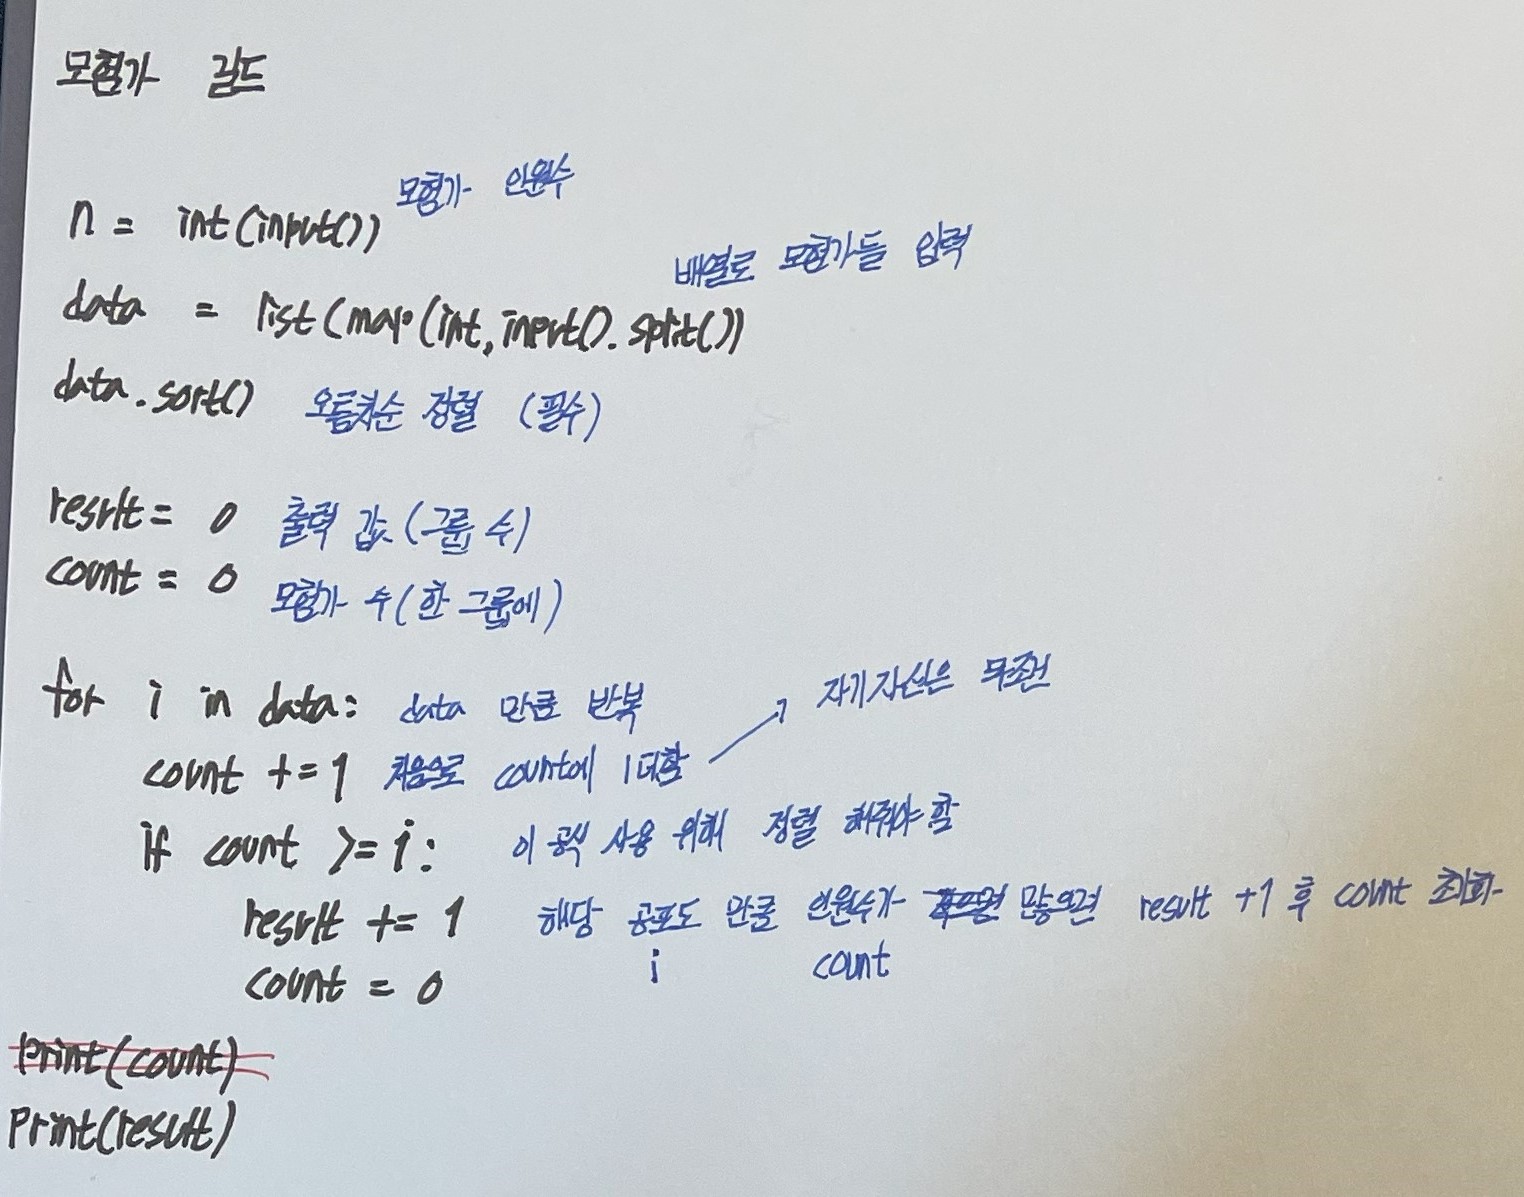 모험가 길드
모험가 인원수
n = int(input())
배열로 모험가들 입력
data = list(map(int, input().split())
data.sort() 오름차순 정렬 (필수)
result = 0 출력 값 (그룹 수)
count = 0 모험가 수 (한 그룹에)
for i in data: data 만큼 반복 자기자신은 무조건
count += 1 처음으로 count에 1 더함 →
if count >= i: 이 공식 사용 위해 정렬 해줘야 함
result += 1 해당 공포도 만큼 인원수가 많으면 result +1 후 count 초기화
i count
count = 0
print(count)
print(result)